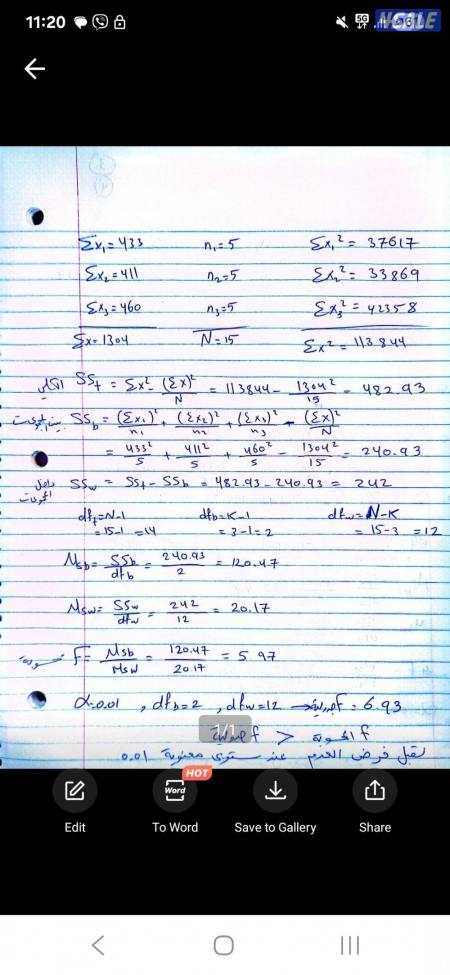 11:20
5G
Σx₁ = 433 n₁ = 5 Σx₁² = 37617
Σx₂ = 411 n₂ = 5 Σx₂² = 33869
Σx₃ = 460 n₃ = 5 Σx₃² = 42358
Σx = 1304 N = 15 Σx² = 113844
الكلي SSt = Σx² - (Σx)²/N = 113844 - 1304²/15 = 482.93
بين المجموعات SSb = (Σx₁)²/n₁ + (Σx₂)²/n₂ + (Σx₃)²/n₃ - (Σx)²/N
= 433²/5 + 411²/5 + 460²/5 - 1304²/15 = 240.93
داخل المجموعات SSw = SSt - SSb = 482.93 - 240.93 = 242
dft = N-1 dfb = K-1 dfw = N-K
= 15-1 = 14 = 3-1 = 2 = 15-3 = 12
Msb = SSb/dfb = 240.93/2 = 120.47
Msw = SSw/dfw = 242/12 = 20.17
محسوبة F = Msb/Msw = 120.47/20.17 = 5.97
α = 0.01 , dfb = 2 , dfw = 12 → جدولية f = 6.93
f المحسوبة < f الجدولية
نقبل فرض العدم عند مستوى معنوية 0.01
1/1
HOT
Word
Edit To Word Save to Gallery Share